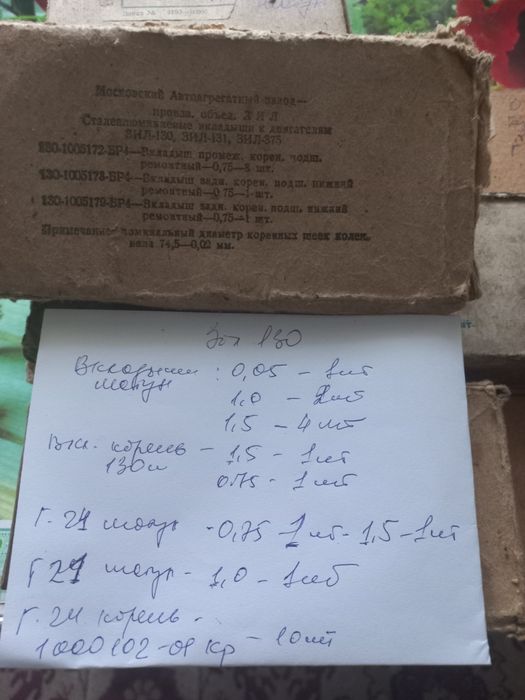 Московский Автоагрегатный завод—
произв. объед. ЗИЛ
Сталеалюминиевые вкладыши к двигателям
ЗИЛ-130, ЗИЛ-131, ЗИЛ-375
130-1005172-БР4—Вкладыш промеж. корен. подш.
ремонтный—0,75—8 шт.
130-1005178-БР4—Вкладыш задн. корен. подш. нижний
ремонтный—0,75—1 шт.
130-1005179-БР4—Вкладыш задн. корен. подш. нижний
ремонтный—0,75—1 шт.
Примечание—номинальный диаметр коренных шеек колен.
вала 74,5—0,02 мм.
Зил 130
Вкладыши : 0,05 - 1шт
шатун
1,0 - 2шт
1,5 - 4 шт
Вкл. корень - 1,5 - 1шт
130и
0.75 - 1 шт
Г. 24 шатун - 0,75 - 1 шт - 1,5 - 1шт
Г 21 шатун - 1,0 - 1шт
Г. 24 корень -
1000102-01 Кр - 10шт